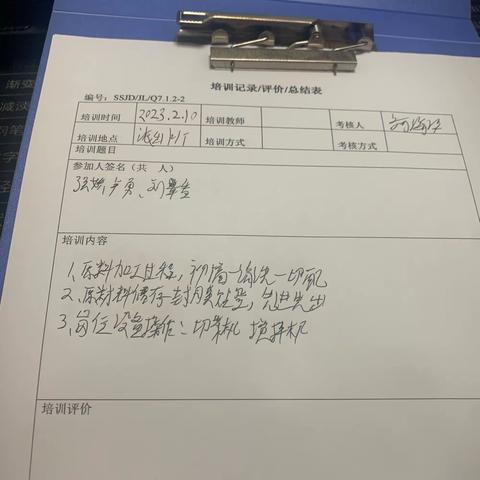 培训记录/评价/总结表
编号：SSJD/JL/Q7.1.2-2
培训时间 2023.2.10 培训教师 考核人
培训地点 培训方式 考核方式
培训题目
参加人签名（共 人）
勇、刘
培训内容
1、原料加工过程，初摘一编洗一切配
2、原材料储存封闭，先进先出
3、岗位设备操作：切菜机 搅拌机
培训评价